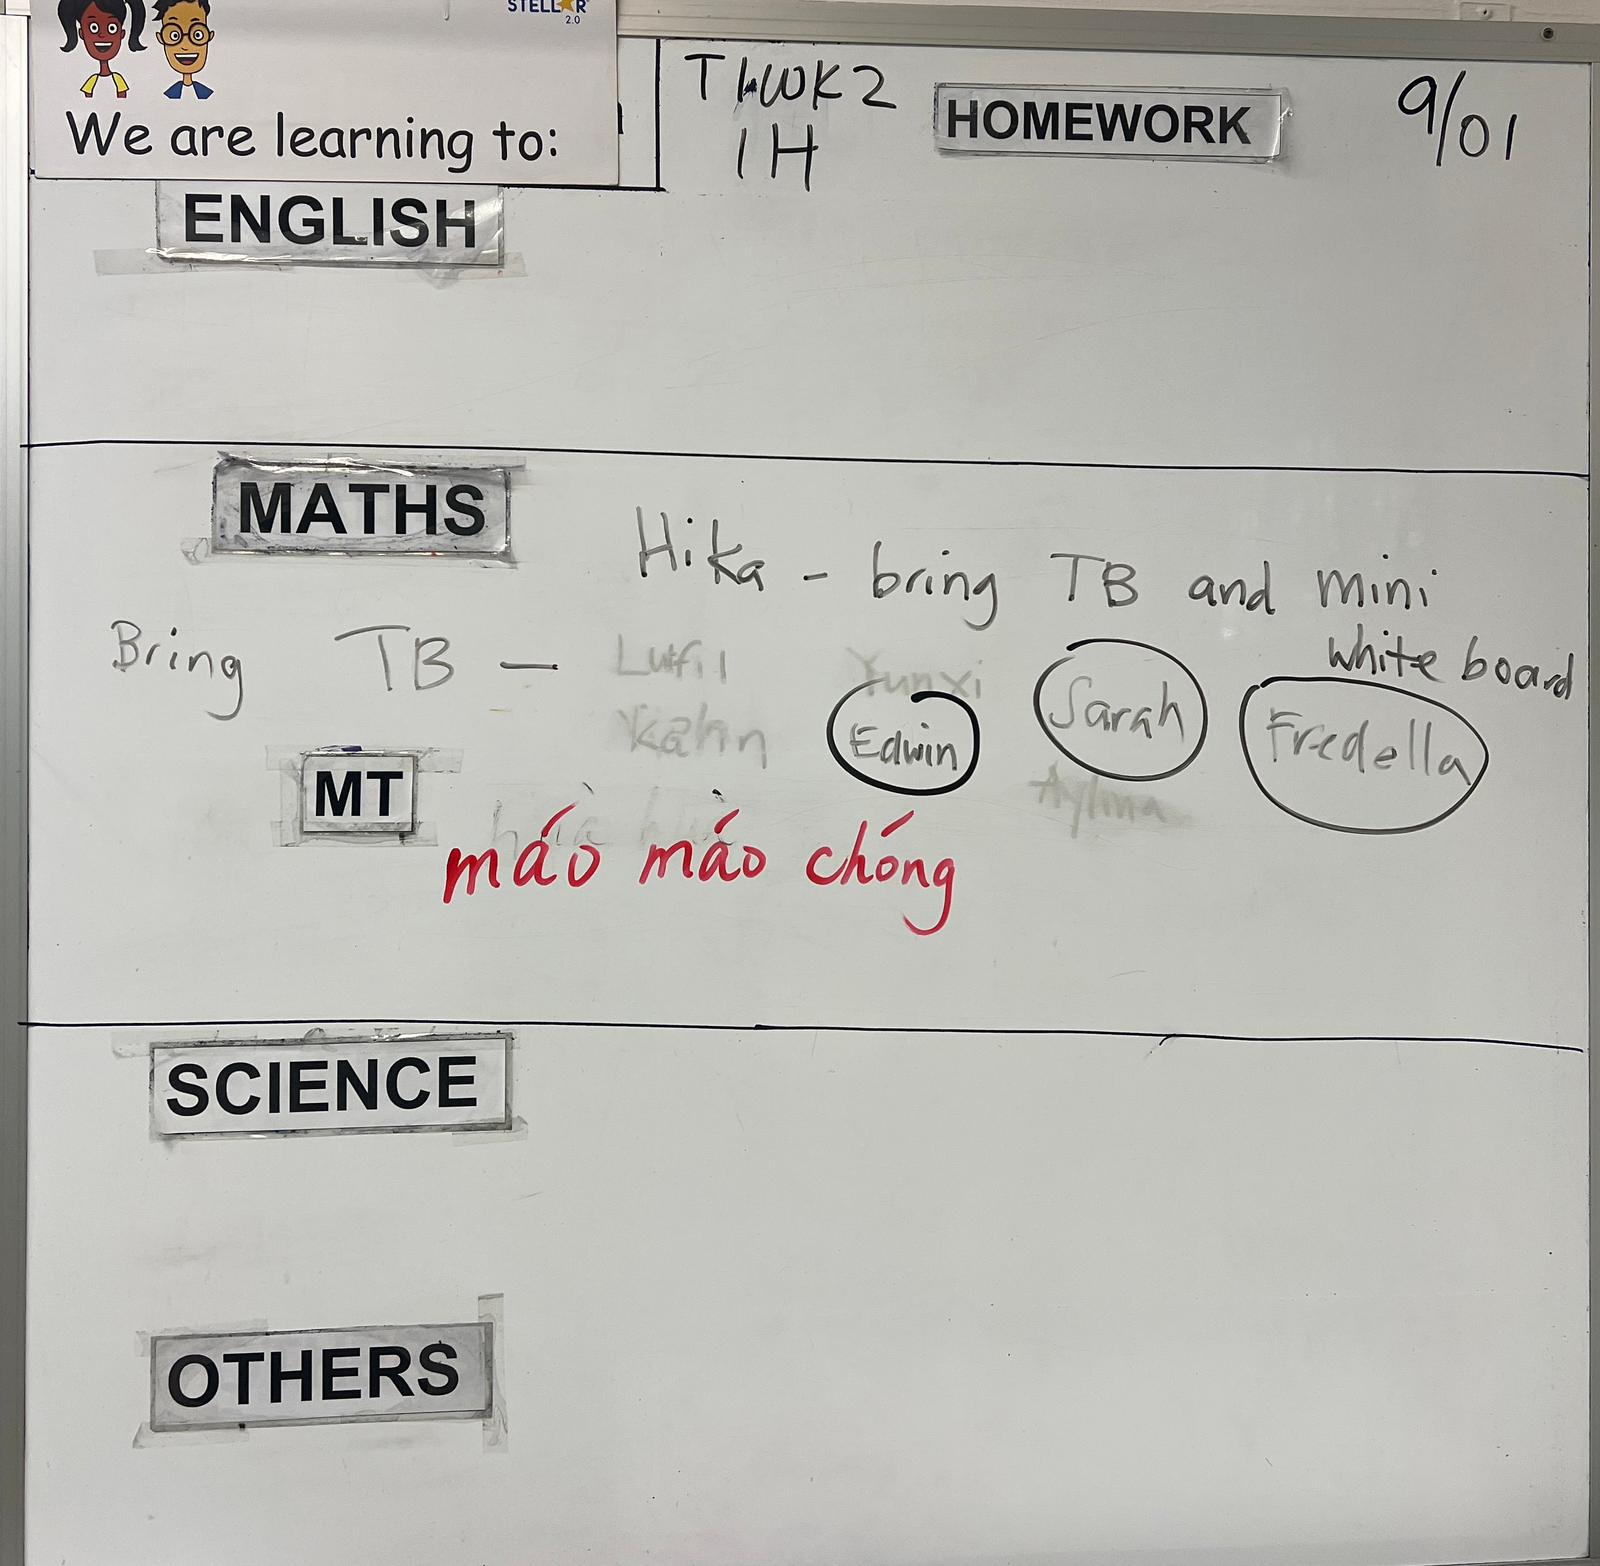 STELLAR 2.0
We are learning to:
T1WK2
1H
HOMEWORK
9/01
ENGLISH
MATHS
Hika - bring TB and mini white board
Bring TB — Lutfil Yunxi
Edwin Sarah Fredella
MT
máo máo chóng
SCIENCE
OTHERS